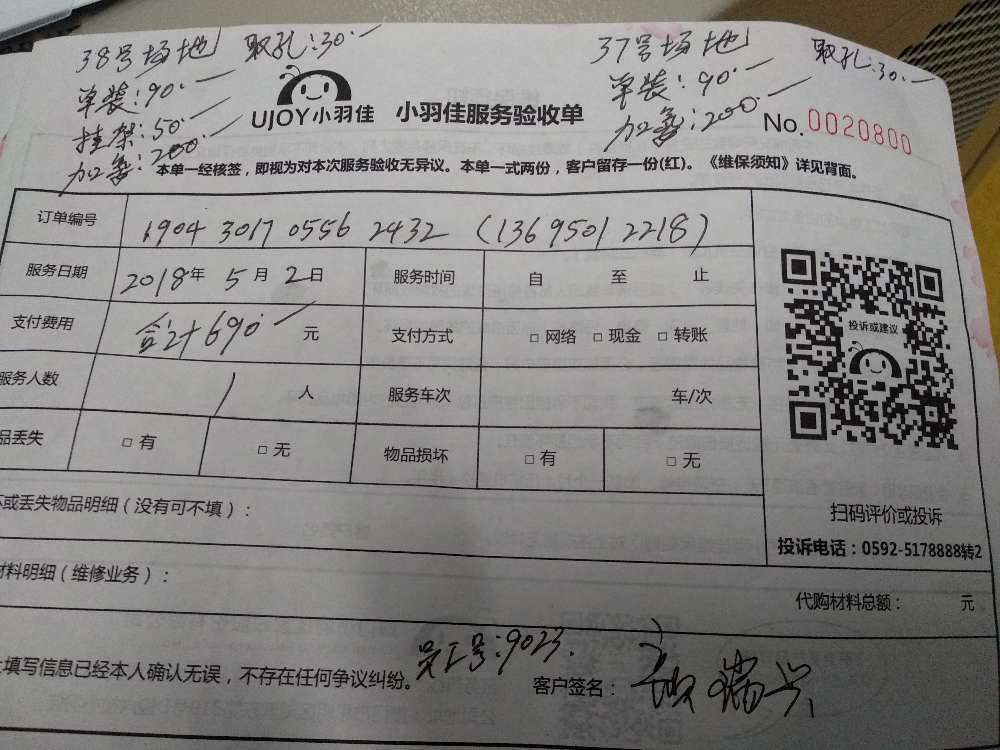 38号场地 取孔:30.一
37号场地 取孔:30.一
单装:90.一
单装:90.一
挂架:50.一
加高:200.一
加高:200.一
UJOY小羽佳 小羽佳服务验收单
No. 0020800
本单一经核签，即视为对本次服务验收无异议。本单一式两份，客户留存一份(红)。《维保须知》详见背面。
订单编号 1904 3017 0556 2432 (13695012218)
服务日期 2018年 5月 2日 服务时间 自 至 止
支付费用 合计690.一 元 支付方式 □ 网络 □ 现金 □ 转账
服务人数 1 人 服务车次 车/次
品丢失 □ 有 □ 无 物品损坏 □ 有 □ 无
投诉或建议
扫码评价或投诉
投诉电话：0592-5178888转2
坏或丢失物品明细（没有可不填）：
材料明细（维修业务）：
代购材料总额： 元
上填写信息已经本人确认无误，不存在任何争议纠纷。
员工号:9023.
客户签名：